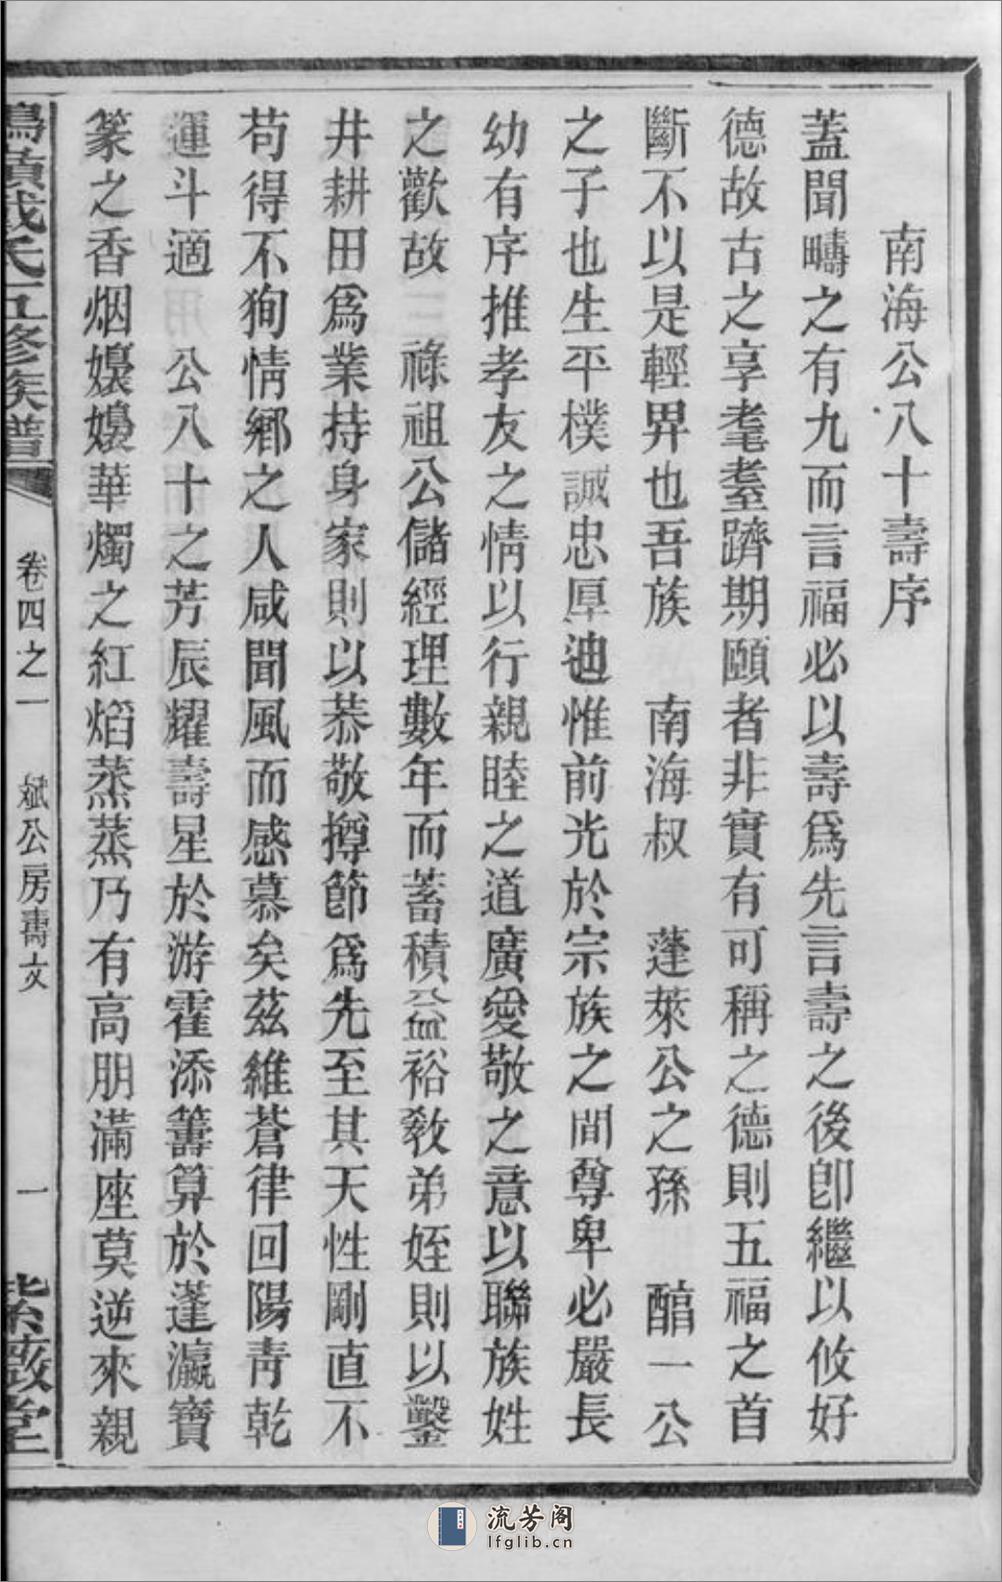 南海公八十壽序
蓋聞疇之有九而言福必以壽爲先言壽之後卽繼以攸好
德故古之享耄耋躋期頤者非實有可稱之德則五福之首
斷不以是輕畀也吾族 南海叔 蓬萊公之孫 醕一公
之子也生平樸誠忠厚迪惟前光於宗族之間尊卑必嚴長
幼有序推孝友之情以行親睦之道廣愛敬之意以聯族姓
之歡故 祿祖公儲經理數年而蓄積益裕教弟姪則以鑿
井耕田爲業持身家則以恭敬撙節爲先至其天性剛直不
苟得不狥情鄉之人咸聞風而感慕矣茲維蒼律回陽靑乾
運斗適 公八十之芳辰耀壽星於游霍添籌算於蓬瀛寶
篆之香烟嬝嬝華燭之紅熖蒸蒸乃有高朋滿座莫逆來親
戴氏五修族譜 卷四之一 斌公房壽文 一 堂
流芳阁
lfglib.cn